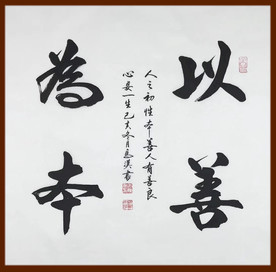 以善
為本
人之初性本善人有善良
心安一生己亥冬月
書